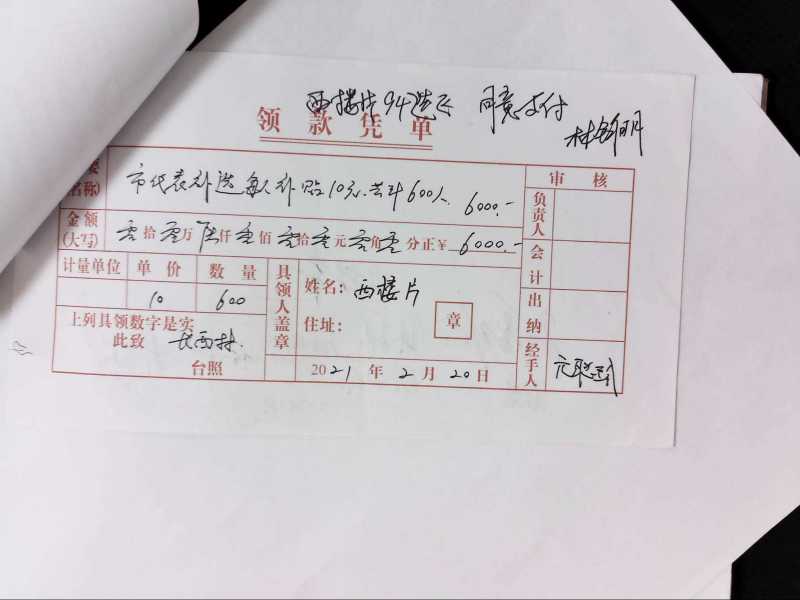 西楼片94选区 同意支付
领款凭单
林
(名称) 市代表补选每人补贴10元.共计600人 6000.-
审核
负责人
金额(大写) 零拾零万陆仟零佰零拾零元零角零分正¥ 6000.-
会计
计量单位 单价 数量
具领人盖章
姓名: 西楼片
10 600
出纳
上列具领数字是实
住址: 章
此致 村
台照
2021年2月20日
经手人